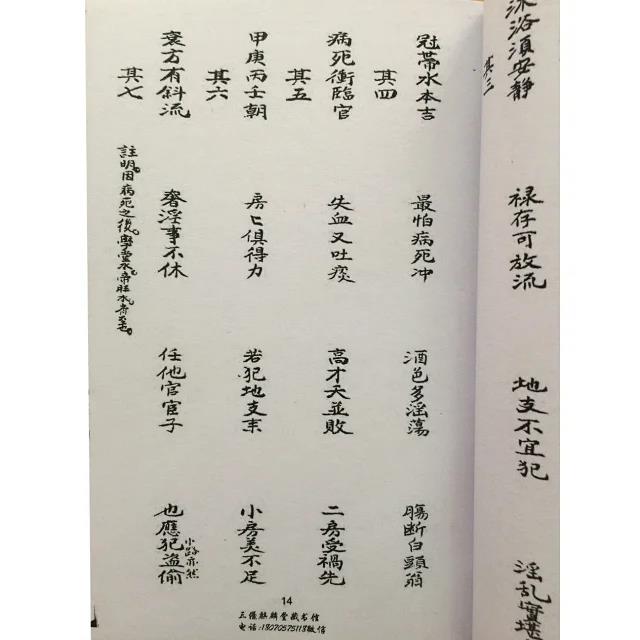 沐浴須安靜 禄存可放流 地支不宜犯 淫乱實堪
其三
冠帶水本吉 最怕病死冲 酒色多淫蕩 腸断白頭翁
其四
病死衝臨官 失血又吐痰 高才夭並敗 二房受禍先
其五
甲庚丙壬朝 房匕俱得力 若犯地支来 小房美不足
其六
衰方有斜流 奢浮事不休 任他官宦子 也應犯盗偷 小路亦然
其七
註明。因病死之後，學堂水，帝旺水齊至也。
14
三僚麒麟堂藏书馆
电话:13070575113微信